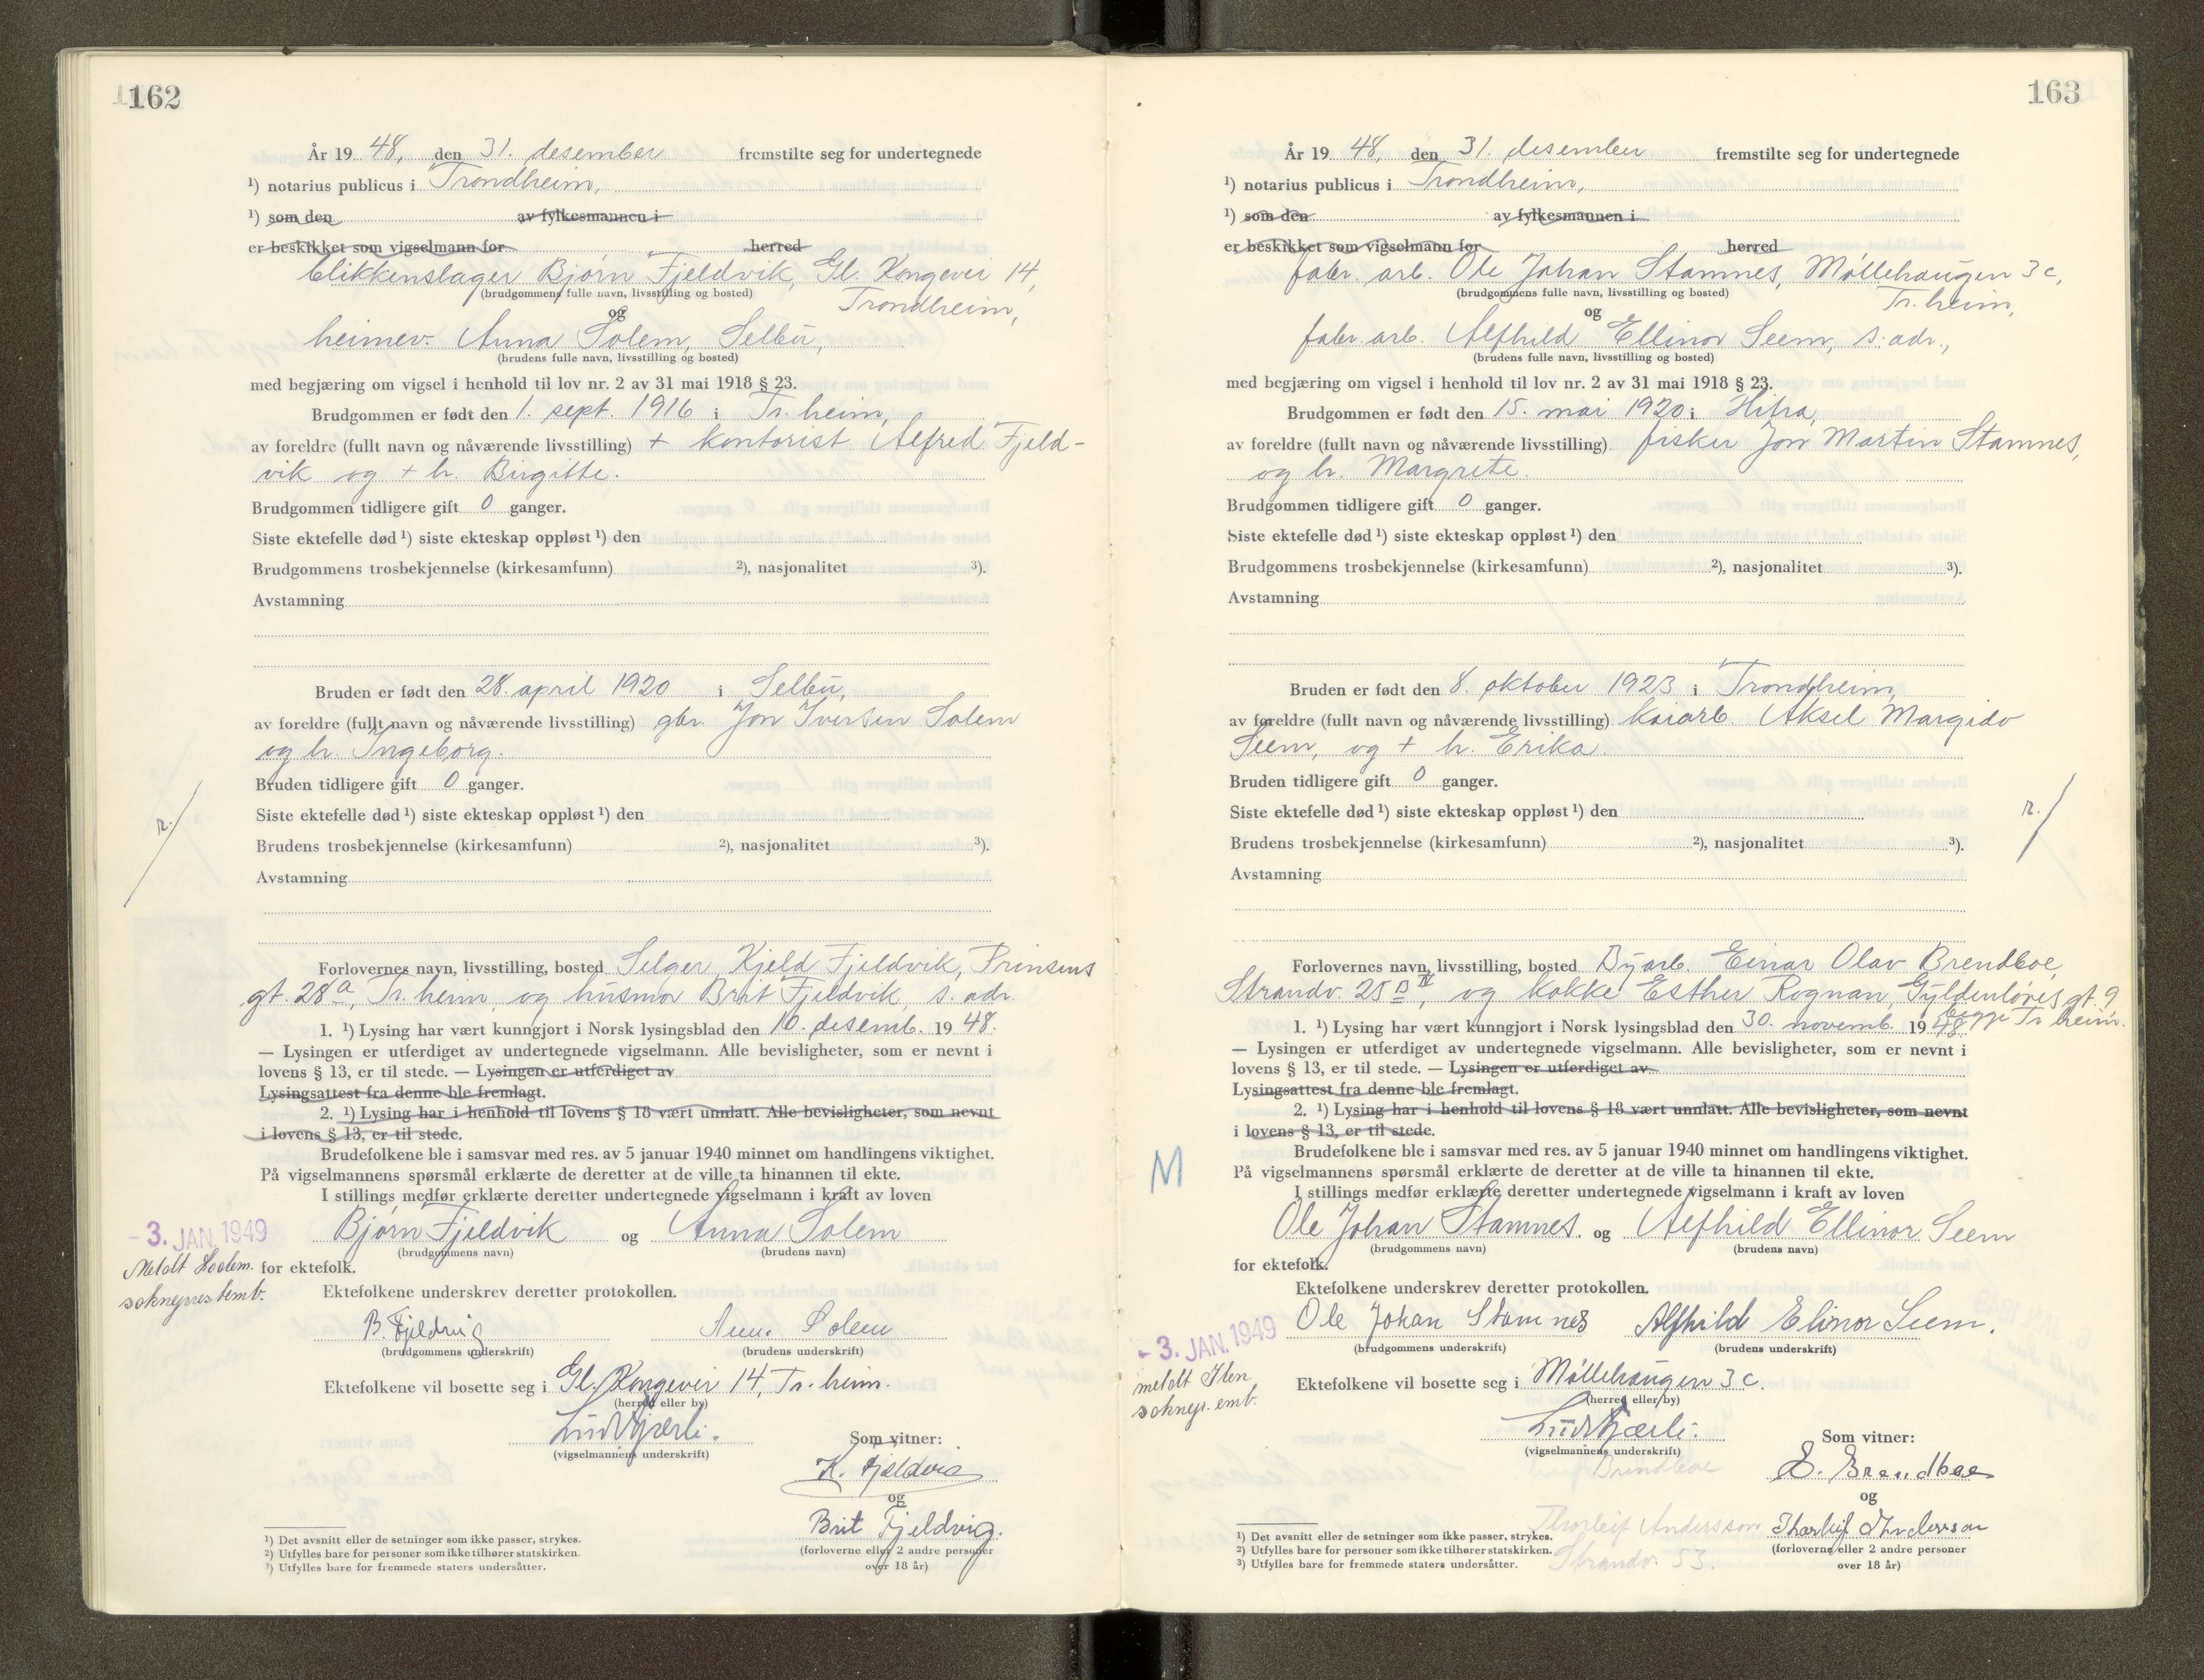 162
År 19 48, den 31. desember fremstilte seg for undertegnede
¹) notarius publicus i Trondheim,
¹) som den av fylkesmannen i
er beskikket som vigselmann for herred
blikkenslager Bjørn Fjeldvik, Gl. Kongevei 14,
(brudgommens fulle navn, livsstilling og bosted)
Trondheim,
og
heimev. Anna Solem, Selbu,
(brudens fulle navn, livsstilling og bosted)
med begjæring om vigsel i henhold til lov nr. 2 av 31 mai 1918 § 23.
Brudgommen er født den 1. sept. 1916 i Tr.heim,
av foreldre (fullt navn og nåværende livsstilling) + kontorist Alfred Fjeld-
vik og + h. Birgitte.
Brudgommen tidligere gift 0 ganger.
Siste ektefelle død ¹) siste ekteskap oppløst ¹) den
Brudgommens trosbekjennelse (kirkesamfunn) ²), nasjonalitet ³).
Avstamning
Bruden er født den 28. april 1920 i Selbu,
av foreldre (fullt navn og nåværende livsstilling) gbr. Jon Iversen Solem
og h. Ingeborg.
Bruden tidligere gift 0 ganger.
Siste ektefelle død ¹) siste ekteskap oppløst ¹) den
r.
Brudens trosbekjennelse (kirkesamfunn) ²), nasjonalitet ³).
Avstamning
Forlovernes navn, livsstilling, bosted Selger Kjeld Fjeldvik, Prinsens
gt. 28a, Tr.heim og husmor Brit Fjeldvik s. adr.
1. ¹) Lysing har vært kunngjort i Norsk lysingsblad den 10. desemb. 19 48.
— Lysingen er utferdiget av undertegnede vigselmann. Alle bevisligheter, som er nevnt i
lovens § 13, er til stede. — Lysingen er utferdiget av
Lysingsattest fra denne ble fremlagt.
2. ¹) Lysing har i henhold til lovens § 18 vært unnlatt. Alle bevisligheter, som nevnt
i lovens § 13, er til stede.
Brudefolkene ble i samsvar med res. av 5 januar 1940 minnet om handlingens viktighet.
På vigselmannens spørsmål erklærte de deretter at de ville ta hinannen til ekte.
I stillings medfør erklærte deretter undertegnede vigselmann i kraft av loven
Bjørn Fjeldvik og Anna Solem
(brudgommens navn) (brudens navn)
- 3. JAN. 1949
Meldt Hoelem.
soknepres temb.
for ektefolk.
Ektefolkene underskrev deretter protokollen.
B. Fjeldvig Anna Solem
(brudgommens underskrift) (brudens underskrift)
Ektefolkene vil bosette seg i Gl. Kongevei 14, Tr.heim.
(herred eller by)
(vigselmannens underskrift)
Som vitner:
K. Fjeldvig
og
Brit Fjeldvig.
(forloverne eller 2 andre personer
over 18 år)
¹) Det avsnitt eller de setninger som ikke passer, strykes.
²) Utfylles bare for personer som ikke tilhører statskirken.
³) Utfylles bare for fremmede staters undersåtter.
163
År 19 48, den 31. desember fremstilte seg for undertegnede
¹) notarius publicus i Trondheim,
¹) som den av fylkesmannen i
er beskikket som vigselmann for herred
fabr. arb. Ole Johan Stamnes, Møllehaugen 3c,
(brudgommens fulle navn, livsstilling og bosted)
Tr.heim,
og
fabr. arb. Alfhild Ellinor Seem, s. adr.,
(brudens fulle navn, livsstilling og bosted)
med begjæring om vigsel i henhold til lov nr. 2 av 31 mai 1918 § 23.
Brudgommen er født den 15. mai 1920 i Hitra,
av foreldre (fullt navn og nåværende livsstilling) fisker Jon Martin Stamnes,
og h. Margrete.
Brudgommen tidligere gift 0 ganger.
Siste ektefelle død ¹) siste ekteskap oppløst ¹) den
Brudgommens trosbekjennelse (kirkesamfunn) ²), nasjonalitet ³).
Avstamning
Bruden er født den 8. oktober 1923 i Trondheim,
av foreldre (fullt navn og nåværende livsstilling) kaiarb. Aksel Margido
Seem, og + h. Erika.
Bruden tidligere gift 0 ganger.
Siste ektefelle død ¹) siste ekteskap oppløst ¹) den
r.
Brudens trosbekjennelse (kirkesamfunn) ²), nasjonalitet ³).
Avstamning
Forlovernes navn, livsstilling, bosted Byarb. Einar Olav Brendboe,
Strandv. 25 B IV, og kokke Esther Rognan, Gyldenløves gt. 9,
begge Tr.heim.
1. ¹) Lysing har vært kunngjort i Norsk lysingsblad den 30. novemb. 19 48
— Lysingen er utferdiget av undertegnede vigselmann. Alle bevisligheter, som er nevnt i
lovens § 13, er til stede. — Lysingen er utferdiget av
Lysingsattest fra denne ble fremlagt.
2. ¹) Lysing har i henhold til lovens § 18 vært unnlatt. Alle bevisligheter, som nevnt
i lovens § 13, er til stede.
Brudefolkene ble i samsvar med res. av 5 januar 1940 minnet om handlingens viktighet.
M
På vigselmannens spørsmål erklærte de deretter at de ville ta hinannen til ekte.
I stillings medfør erklærte deretter undertegnede vigselmann i kraft av loven
Ole Johan Stamnes. og Alfhild Ellinor Seem
(brudgommens navn) (brudens navn)
for ektefolk.
Ektefolkene underskrev deretter protokollen.
Ole Johan Stamnes Alfhild Elinor Seem.
(brudgommens underskrift) (brudens underskrift)
- 3. JAN. 1949
meldt Ilen
soknepr. emb.
Ektefolkene vil bosette seg i Møllehaugen 3c.
(herred eller by)
(vigselmannens underskrift)
Brendboe
Som vitner:
E. Brendboe
og
Thorleif Andersson Thorleif Andersson
Strandv 53.
(forloverne eller 2 andre personer
over 18 år)
¹) Det avsnitt eller de setninger som ikke passer, strykes.
²) Utfylles bare for personer som ikke tilhører statskirken.
³) Utfylles bare for fremmede staters undersåtter.